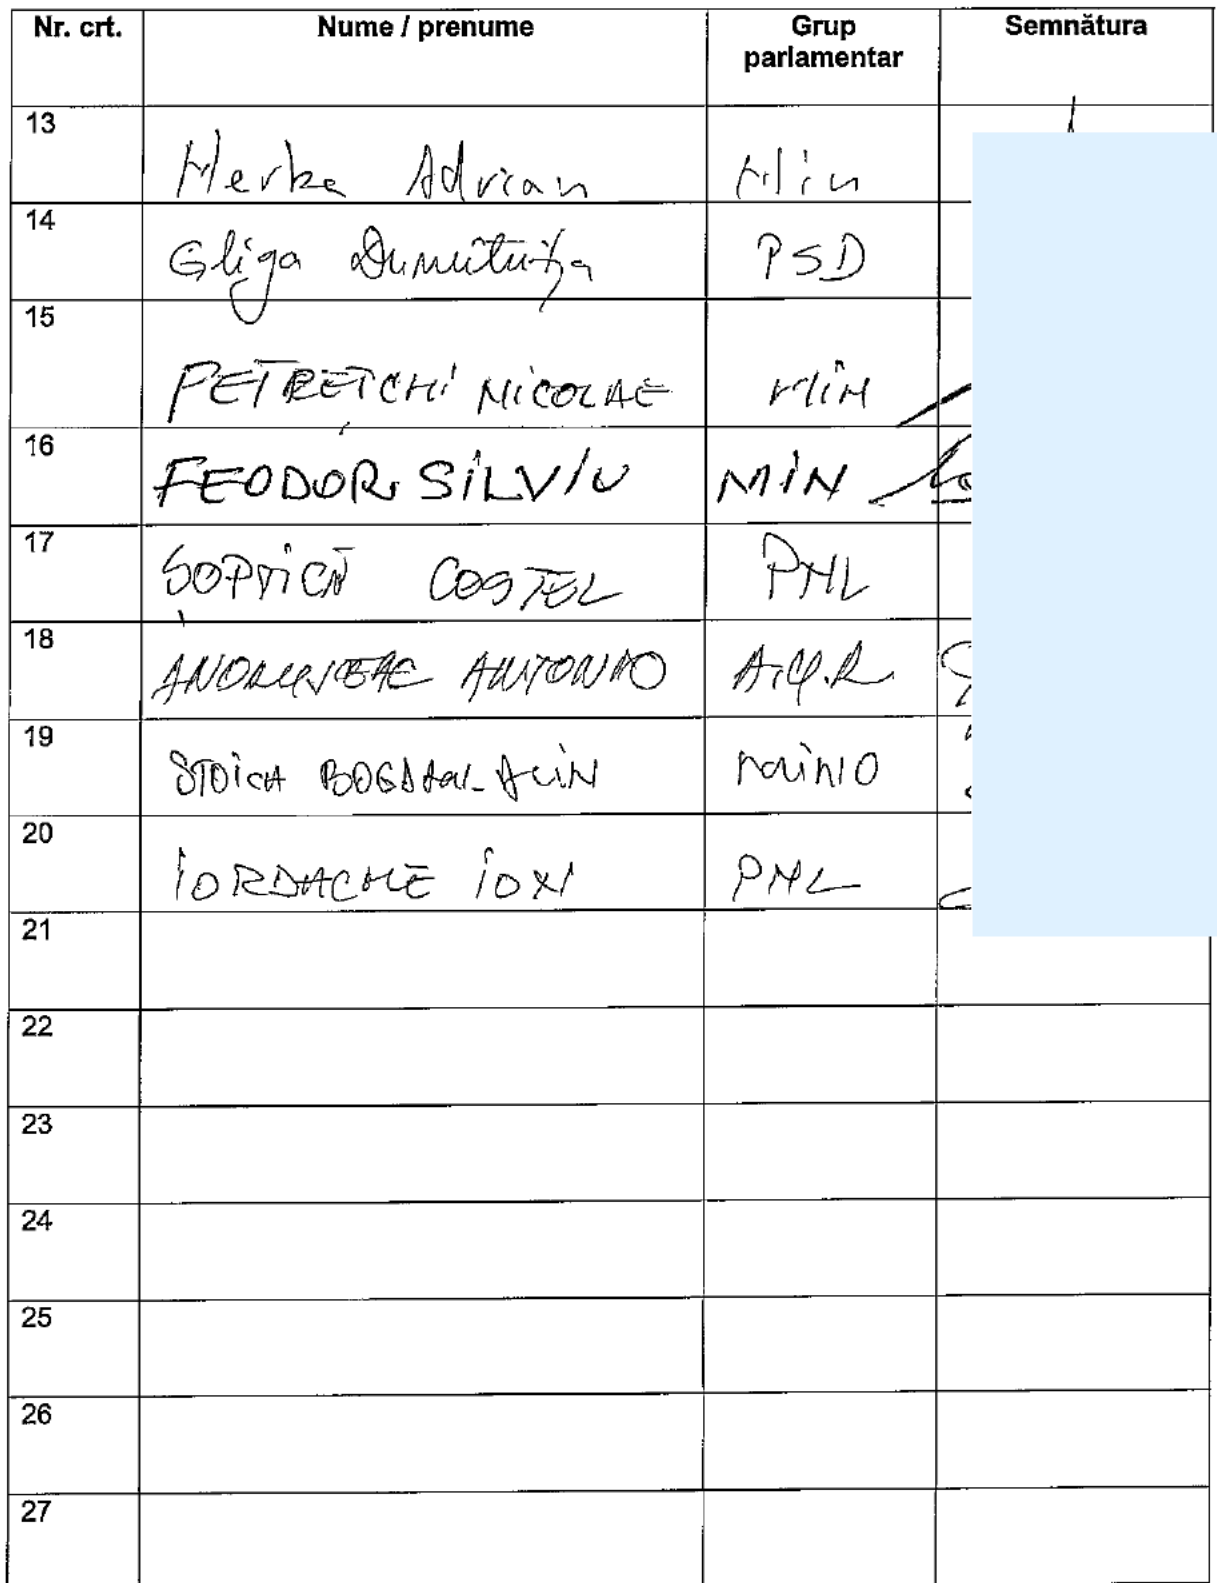 Nr. crt. Nume / prenume Grup parlamentar Semnătura
13 Merka Adrian Min
14 Gliga Dumitrița PSD
15 PETREȚCHI NICOLAE MIN
16 FEODOR SILVIU MIN
17 ȘOPTICĂ COSTEL PNL
18 ANDRUȘCEAC ANTONIO A.U.R
19 STOICA BOGDAN-ALIN MINO
20 IORDACHE ION PNL
21
22
23
24
25
26
27